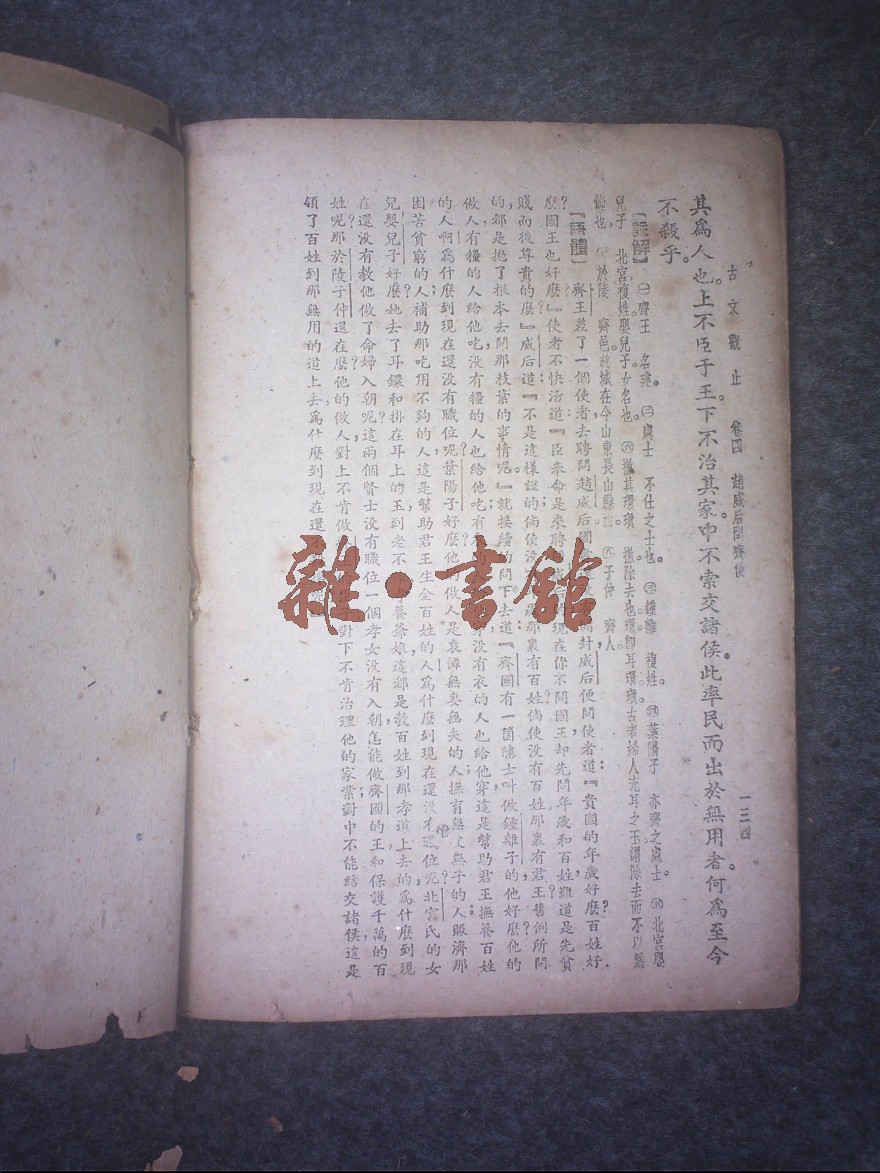 古文觀止　卷四　趙威后問齊使　一三四
其爲人也。上不臣于王。下不治其家。中不索交諸侯。此率民而出於無用者。何爲至今
不殺乎。
【註解】㊀齊王　名建。㊁處士　不仕之士也。㊂鍾離　複姓。㊃葉陽子　亦齊之處士。㊄北宮嬰
兒子　北宮複姓嬰兒子女名也。㊅撤其環瑱　撤除去也環卽耳環瑱古者婦人充耳之玉謂除去而不以爲
飾也　於陵　齊邑故城在今山東長山縣　子仲　齊人。
【語體】齊王差了一個使者去聘問趙威后國　封威后便問使者道『貴國的年歲好麼？百姓好
麼？國王也好麼？』使者不快活道：『臣奉命是來聘　現在你不問國王却先問年歲和百姓難道是先貧
賤而後尊貴的麼？』威后道：『不是這樣說的倘使沒　那裏有百姓倘使沒有百姓那裏有君王舊例所問
的，都是拋了根本去問那枝葉的事情呢。』就接續的問下去道：『齊國有一箇隱士叫做鍾離子的他好麼？他的
做人，有糧的人給他吃，沒有糧的人也給他吃；有　穿沒有衣的人也給他穿，這是幫助君王撫養百姓
的人啊！爲什麼到現在還沒有職位呢？葉陽子好麼？他的做人是哀　無妻無夫的人撫有無　無子的人賑濟那
困苦貧窮的人；補助那吃用不夠的人這是幫助君王生全百姓的人爲什麼到現在還沒　位呢？北宮氏的女
兒嬰兒子好麼？她去了耳鐶和掛在耳上的玉到老不　養爺娘這都是敎百姓到那孝道上去的，爲什麼到現
在還沒有敎他做了命婦入朝呢？這兩個賢士沒有職位一個孝女沒有入朝，怎能做齊國的王，和保護千萬的百
姓呢？那於陵子仲還在麼？他的做人對上不肯做　對下不肯治理他的家業；對中不能結交諸侯，這是
領了百姓到那無用的道上去，爲什麼到現在還不
雜·書館